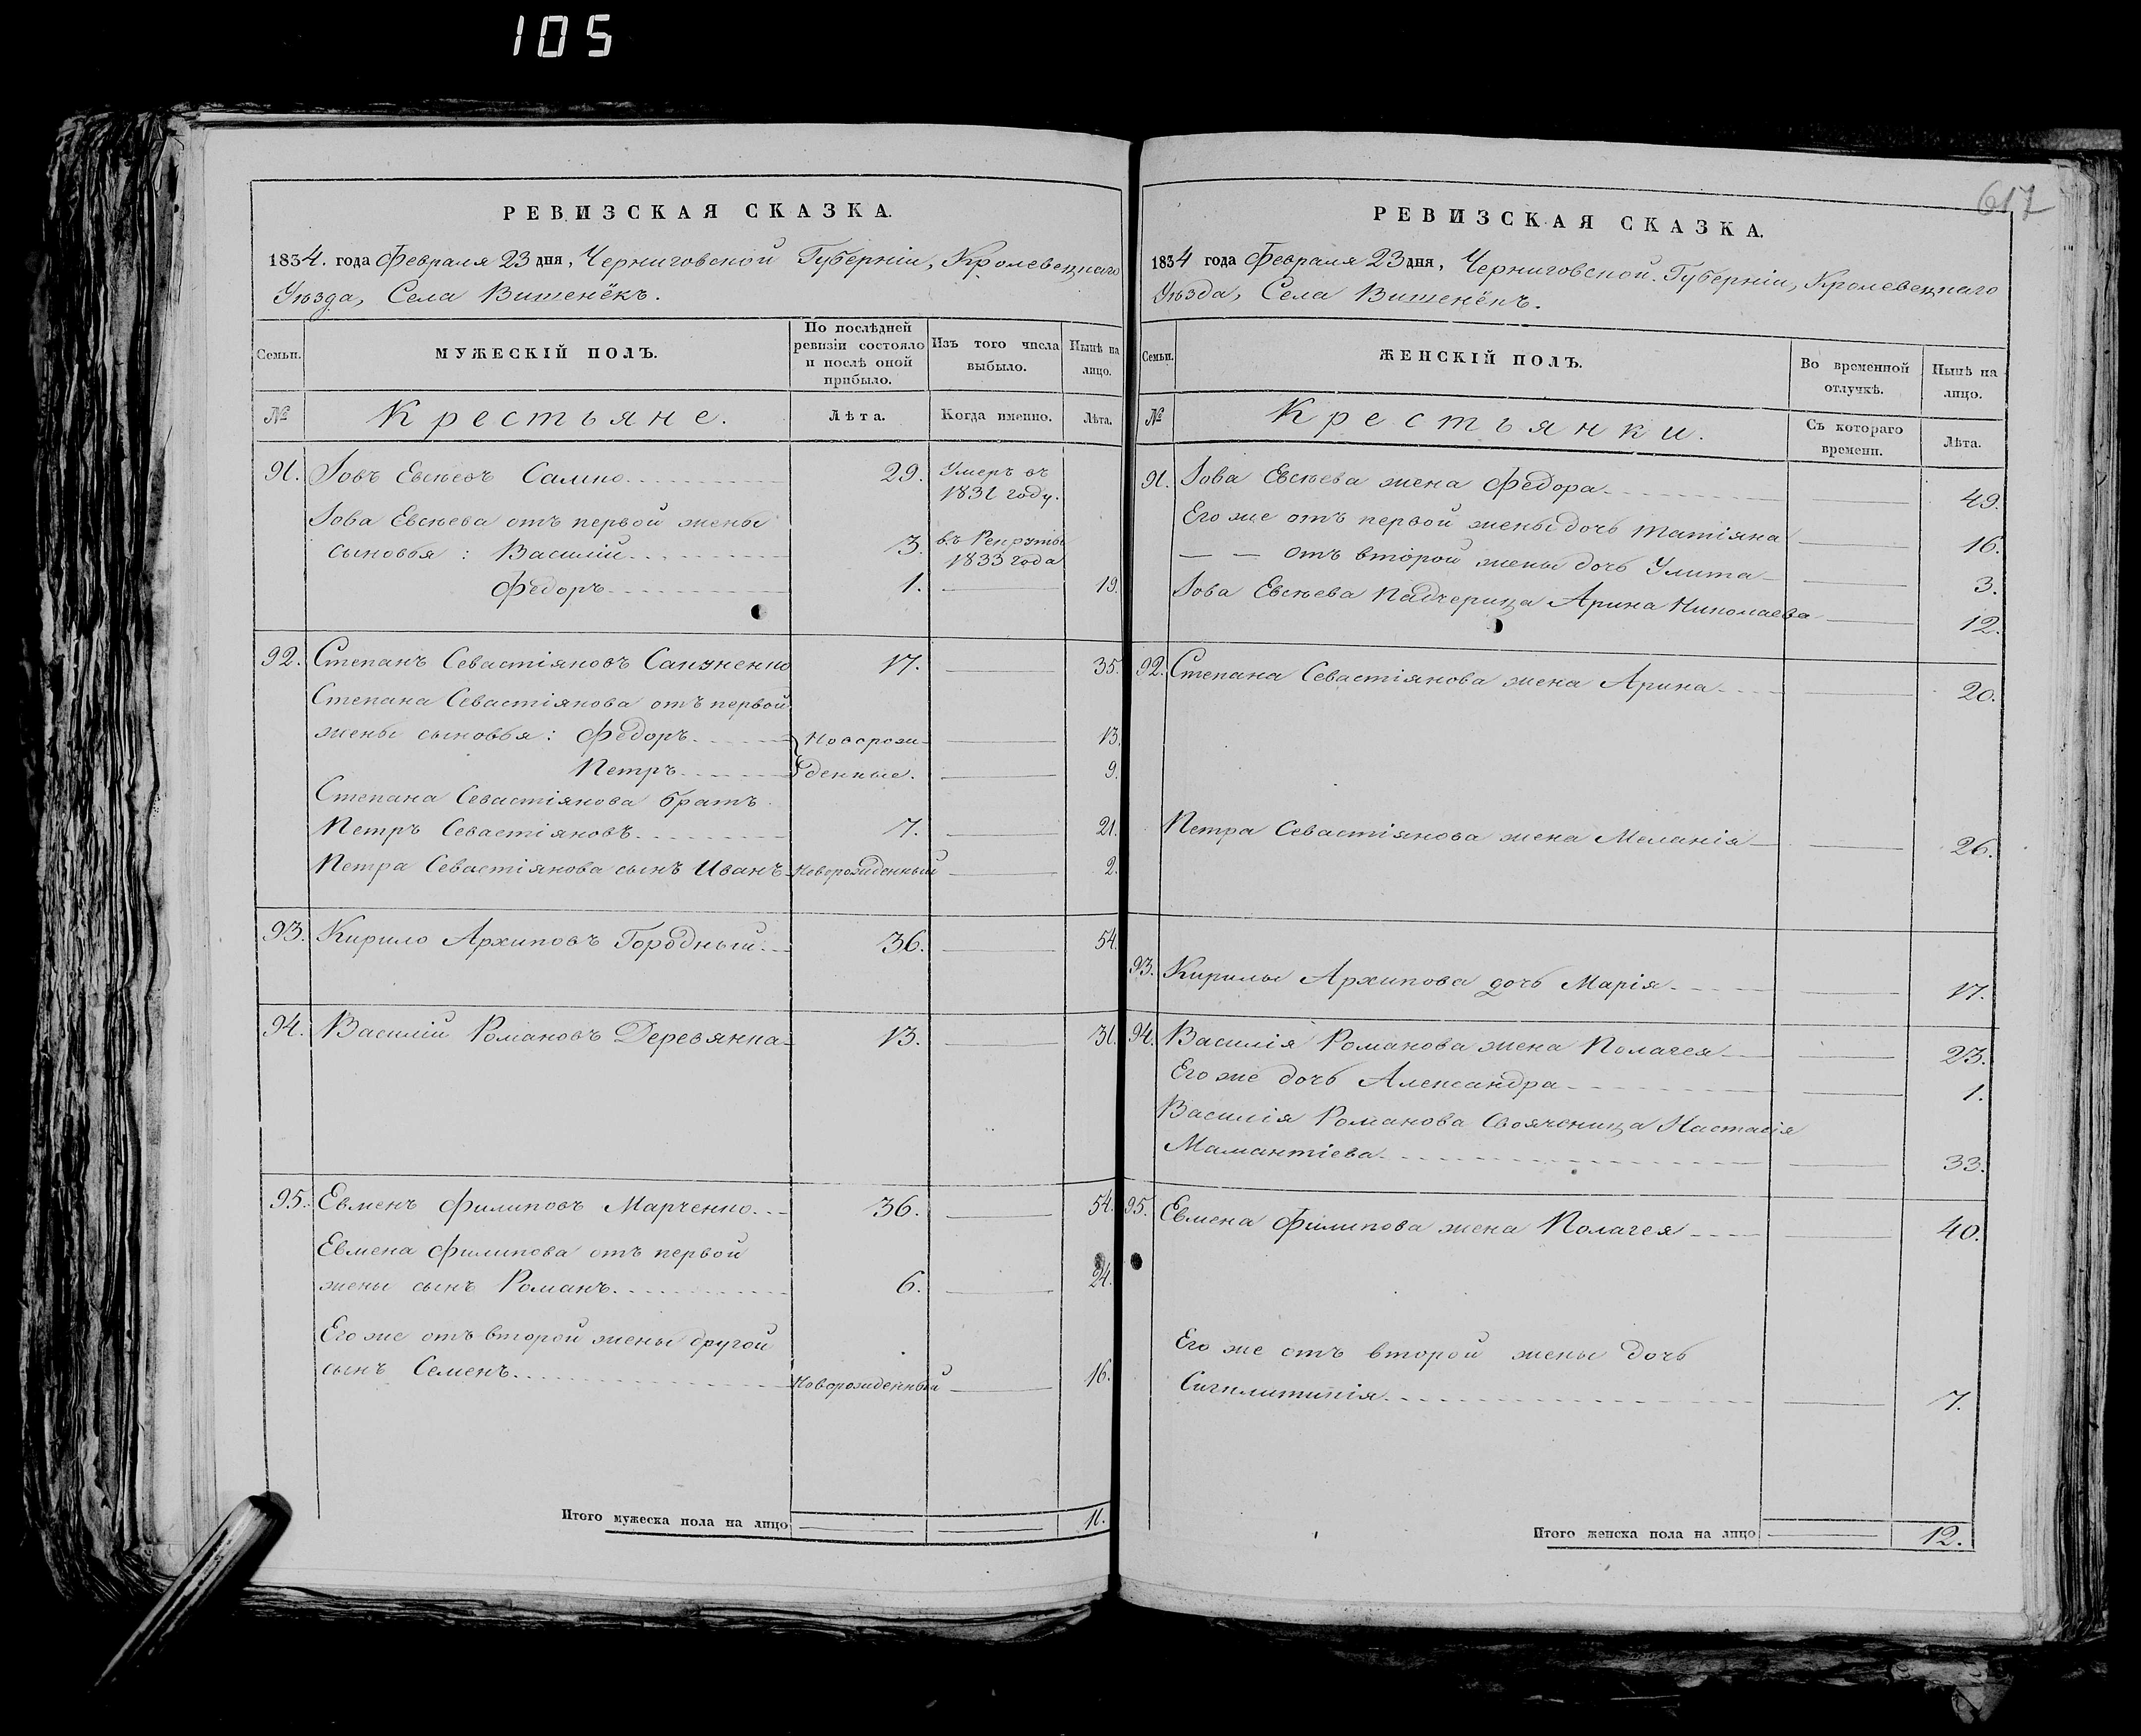 105
617
РЕВИЗСКАЯ СКАЗКА.
1834. года Февраля 23 дня, Черниговской Губерніи, Кролевецкаго
Уѣзда, Села Вишенёкъ.
Семьи.
МУЖЕСКІЙ ПОЛЪ.
По послѣдней ревизіи состояло и послѣ оной прибыло.
Изъ того числа выбыло.
Нынѣ на лицо.
№ Крестьяне. Лѣта. Когда именно. Лѣта.
91. Іовъ Евсѣевъ Салко 29. Умеръ въ
1831 году.
Іова Евсѣева отъ первой жены
сыновья: Василій 3. въ Рекруты
1833 года
Федоръ 1. 19.
92. Степанъ Севастіяновъ Сапуненко 17. 35.
Степана Севастіянова отъ первой
жены сыновья: Федоръ Новорож- 13.
Петръ денные. 9.
Степана Севастіянова братъ
Петръ Севастіяновъ 7. 21.
Петра Севастіянова сынъ Иванъ Новорожденный 2.
93. Кирило Архиповъ Городный 36. 54.
94. Василій Романовъ Деревянка 13. 31.
95. Евменъ Филиповъ Марченко 36. 54.
Евмена Филипова отъ первой
жены сынъ Романъ 6. 24.
Его же отъ второй жены другой
сынъ Семенъ Новорожденный 16.
Итого мужеска пола на лицо 11.
РЕВИЗСКАЯ СКАЗКА.
1834 года Февраля 23 дня, Черниговской Губерніи, Кролевецкаго
Уѣзда, Села Вишенёкъ.
Семьи.
ЖЕНСКІЙ ПОЛЪ.
Во временной отлучкѣ.
Нынѣ на лицо.
№ Крестьянки. Съ котораго времени. Лѣта.
91. Іова Евсѣева жена Федора 49.
Его же отъ первой жены дочь Татіяна 16.
— — отъ второй жены дочь Улита 3.
Іова Евсѣева падчерица Арина Николаева 12.
92. Степана Севастіянова жена Арина 20.
Петра Севастіянова жена Меланія 26.
93. Кирилы Архипова дочь Марія 17.
94. Василія Романова жена Полагея 23.
Его же дочь Александра 1.
Василія Романова Свояченица Настасія
Мамантіева 33.
95. Евмена Филипова жена Полагея 40.
Его же отъ второй жены дочь
7.
Итого женска пола на лицо 12.